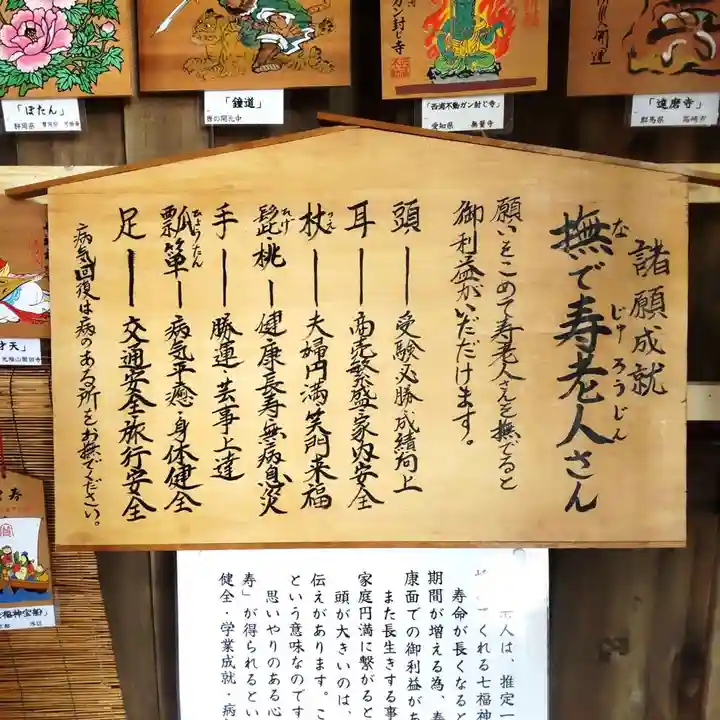 「ぼたん」
「鐘道」
唐の開元中
ガン封じ寺
「西浦不動ガン封じ寺」
愛知県 無量寺
開運
「達磨寺」
群馬県 高崎市
諸願成就
撫で寿老人さん
な じゅろうじん
願いをこめて寿老人さんを撫でると
御利益がいただけます。
頭―受験必勝成績向上
耳―商売繁盛・家内安全
杖―夫婦円満笑門来福
つえ
髭桃―健康長寿・無病息災
ひげ
手―勝運 芸事上達
瓢箪―病気平癒・身体健全
ひょうたん
足―交通安全旅行安全
病気回復は病のある所をお撫でください。
才天」
寿
福神宝船」
人は、推定一
くれる七福神
寿命が長くなると
期間が増える為、寿
康面での御利益があ
また長生きする事
家庭円満に繋がると
頭が大きいのは、
伝えがあります。こ
という意味なのです
思いやりのある心
寿」が得られるとい
健全・学業成就・病